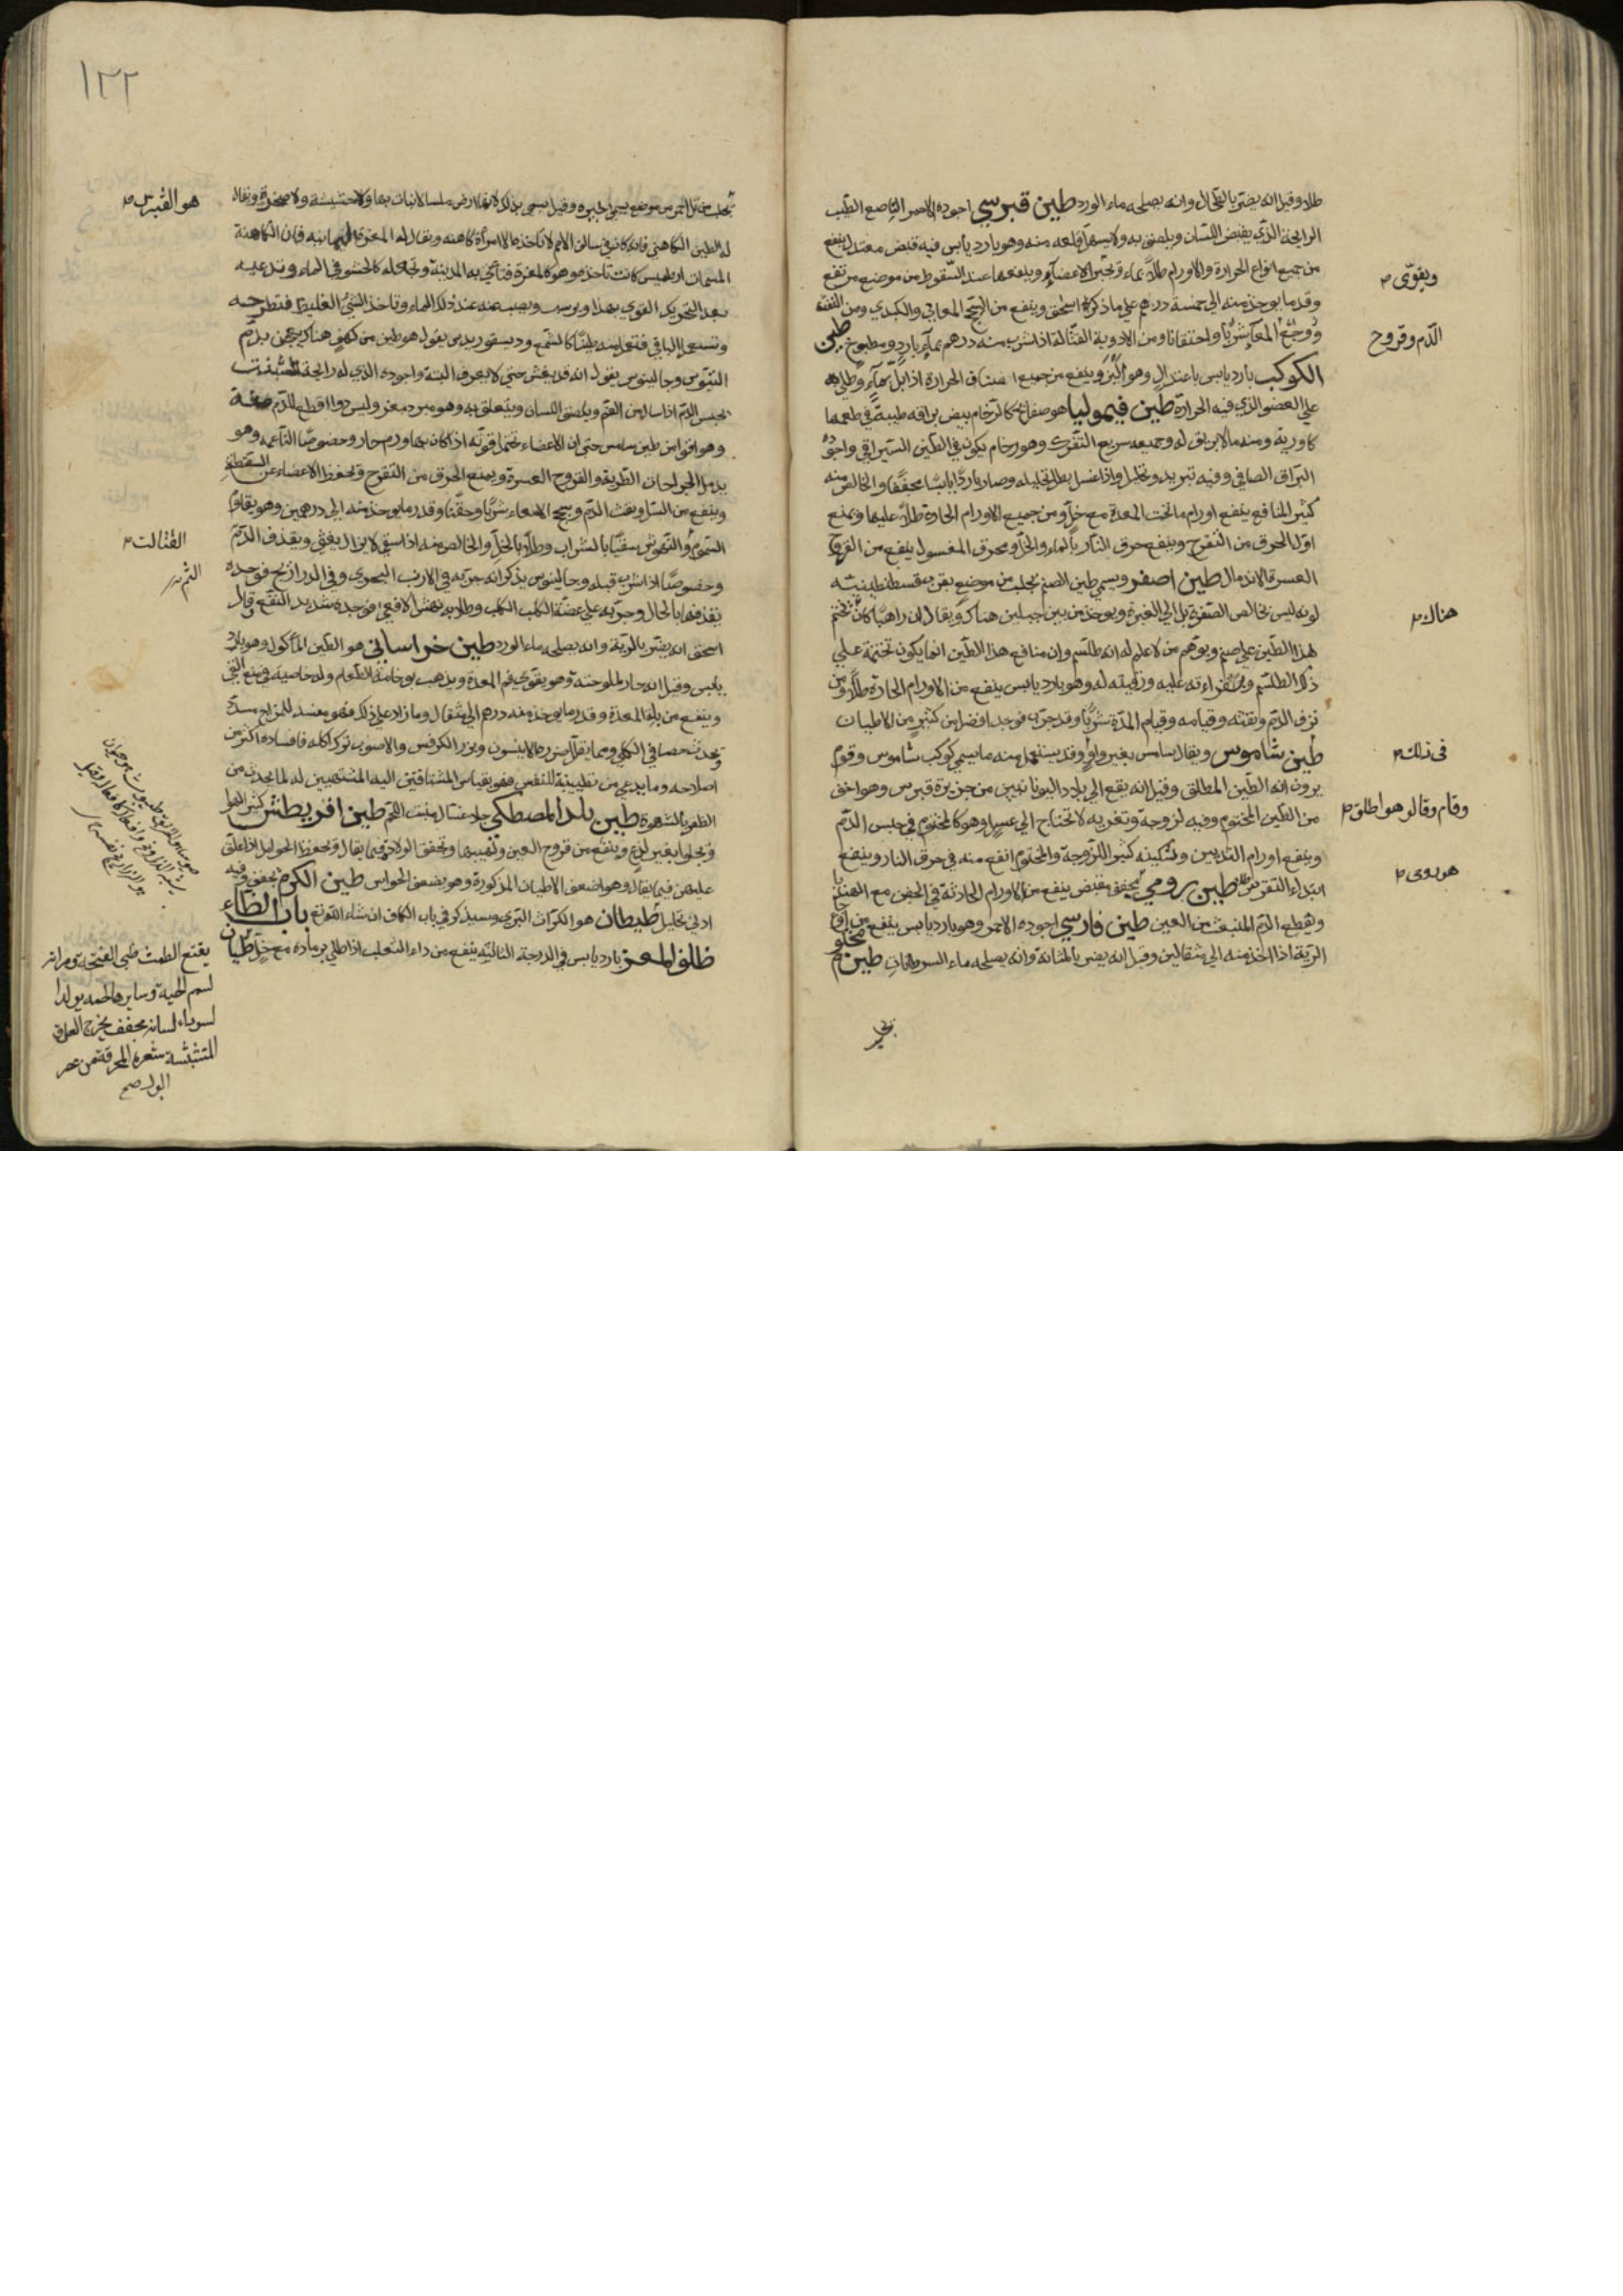 طلاء وقيل انه يضر بالطحال وانه يصلحه ماء الورد طين قبرسي اجوده الاحمر الناصع الطيب
الرايحة الذي يقبض اللسان ويلصق به ولا يسهل قلعه منه وهو بارد يابس فيه قبض معتدل ينفع
من جميع انواع الحرارة والاورام طلاءً بماء ويجبر الاعضاء وينفعها عند السقوط من موضع مرتفع
وقد ما يوخذ منه الي خمسة درهم علي ما ذكره اسحق وينفع من السحج المعاءي والكبدي ومن النفث
ووجع المعا شربًا واحتقانا ومن الادوية القتالة اذا شرب منه درهم بماءٍ باردٍ ومطبوخ طين
الكوكب بارد يابس باعتدالٍ وهو وينفع من جميع الحرارة اذا بل بماءٍ وطلي به
علي العضو الذي فيه الحرارة طين قيموليا هو صفائح كالرخام بيض براقه طيبة في طعمها
كاورية ومنه ما لا بريق له وجميعه سريع التفرك وهو رخام يكون في الطين السيرافي واجوده
البراق الصافي وفيه تبريد وتحليل واذا غسل بطل تحليله وصار باردًا يابسًا مجففًا والخالص منه
كثير المنافع ينفع اورام ما تحت المعدة مع خلٍّ ومن جميع الاورام الحارة طلاءً عليها ويمنع
اول الحرق من التقرح وينفع حرق النار بالماء والخل ومحرق المغسول ينفع من القروح
العسرة الاندمال طين اصفر ويسمي طين الصنم يجلب من موضع بقرب قسطنطينيه
لونه ليس بخالص الصفرة بل الي الغبرة ويوخذ من بين جبلين هناك ويقال ان راهبًا كان يختم
لهذا الطين علي صنم ويوهم من لا علم له انه طلسم وان منافع هذا الطين انما يكون بختمه علي
ذلك الطلسم وقراءته عليه له وهو بارد يابس ينفع من الاورام الحارة طلاءً ومن
نزف الدم ونفثه وقيامه وقيام المدة شربًا وقد جرب فوجد افضل من كثيرٍ من الاطيان
طين شاموس ويقال سامس بغير واوٍ وقد يستعمل منه ما يسمي كوكب شاموس وقوم
يرون انه الطين المطلق وقيل انه يقع الي بلاد اليونانيين من جزيرة قبرس وهو اخف
من الطين المختوم وفيه لزوجة وتغرية لا يحتاج الي غسلٍ وهو كالمختوم في حبس الدم
وينفع اورام الثديين وتسكينه كثير اللزوجة والمختوم انفع منه في حرق النار وينفع
ابتداء النقرس طلاءً طين رومي يجفف بقبض ينفع من الاورام الحادثة في الجفن مع الهندبا
ويقطع الدم المنبعث من العين طين فارسي اجوده الاحمر وهو بارد يابس ينفع من اوجاع
الرية اذا اخذ منه الي مثقالين وقيل انه يضر بالمثانة وانه يصلحه ماء السرطانات طين مختوم
ويقوّي
الدّم وقروح
هناك
في ذلك
وقام وقالو هو اطلق
هو دوى
١٢٢
يجلب من تل احمر من موضع يسمي بحيره وقيل يسمي بذلك لانها ارض ملسا لا نبات بها ولا حشيشة ولا صخرة ويقال
له الطين الكاهني فانه كان في سالف الامم لا تاخذه الا امرأة كاهنه ويقال له المغرة اليمانيه فان الكاهنة
المسماة ارطميس كانت تاخذه وهو كالمغرة فتأتي به المدينة وتجعله كالحشو في الماء وتدعيه
بعد التحريك القوي يهدأ ويرسب ويصب عنه عند ذلك الماء وتاخذ الشيْ الغليظ فتطرحه
وتستعمل الباقي فتعمل منه طينًا كالشمع وديسقوريدس يقول هو طين من كهفٍ هناك يعجن بدم
التيوس وجالينوس يقول انه قد يغش حتي لا يعرف البتة واجوده الذي له رايحة الشبت
يحبس الدم اذا سال من الفم ويلصق اللسان ويتعلق به وهو مبرد مغر وليس دوا اقطع للدم منه
وهو اقوا من طين سامس حتي ان الاعضاء تحتمل قوته اذا كان بها ورم حار وخصوصًا الناعمه وهو
يدمل الجراحات الطرية والقروح العسرة ويمنع الحرق من التقرح ويحفظ الاعضاء عن السقطة
وينفع من السل ونفث الدم وسحج الامعاء شربًا وحقنًا وقدر ما يوخذ منه الي درهمين وهو يقاوم
السموم والنهوش سقيًا بالشراب وطلاءً بالخل والخالص منه اذا سقي لا يزال يغثي ويقذف الدم
وخصوصًا اذا شرب قبله وجالينوس يذكر انه جربه في الارنب البحري وفي الذراريح فوجده
يقذفها بالحال وجربه علي عضة الكلب الكلب وطلا به نهش الافعي فوجده شديد النفع وقال
اسحق انه يضر بالرية وانه يصلحه ماء الورد طين خراساني هو الطين المأكول وهو بارد
يابس وقيل انه حار لملوحته وهو يقوي فم المعدة ويذهب بوخامة الطعام وله خاصية في منع القي
وينفع من بلة المعدة وقدر ما يوخذ منه درهم الي مثقال وما زاد علي ذلك فهو مفسد للمزاج مسدد
ويحدث حصا في الكلي ومما يقلل ضررها الانيسون وبزر الكرفس والاصوب ترك اكله فافساده اكثر من
اصلاحه وما يدعي من تطييبه للنفس فهو بقياس المشتاقين اليه المشتهيين له لما يحدث من
الظفر بالشهوة طين بلد المصطكي جلاء غسال ينبت اللحم طين افريطش كثير الهوا
ويجلوا بغير لذعٍ وينفع من قروح العين وتقيبها ويخفف الولادة فيما يقال ويحفظ الحوامل اذا علق
عليهن فيما يقال وهو اضعف الاطيان المذكورة وهو يضعف الحواس طين الكرم يجفف وفيه
ادني تحليل طيطان هو الكراث البري وسيذكر في باب الكاف ان شاء الله تع باب الظاء
ظلف المعز بارد يابس في الدرجة الثالثة ينفع من داء الثعلب اذا طلي برماده مع خلٍ ظيان
هو القبرس
القتالت
يقتع الطمث ظبي
لسم الحية وساير
لسوداء لسانه مجفف يخرج العلق
المتشبثة شعره المحرقة من عسر
البول صح